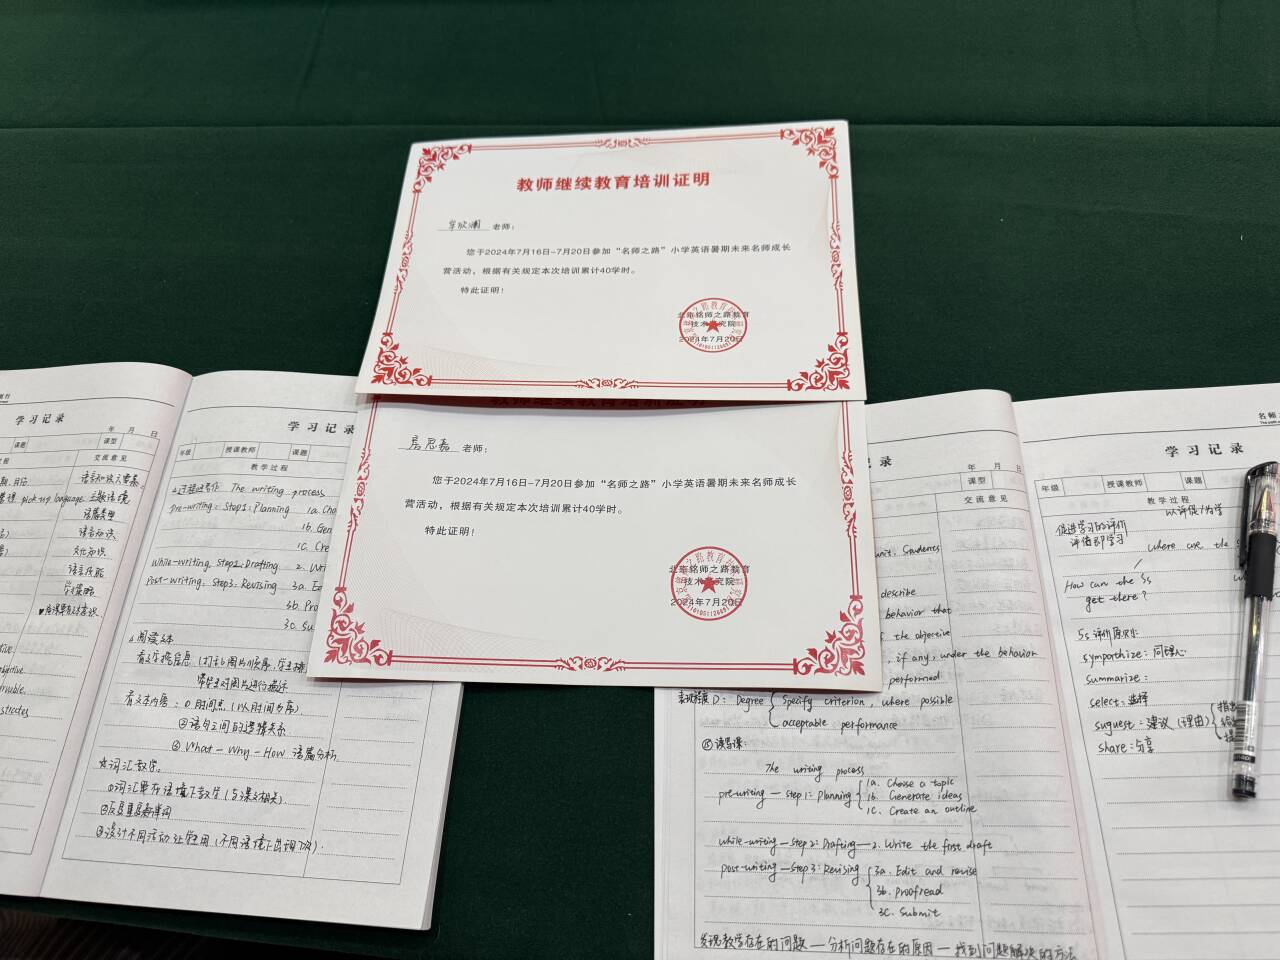 教师继续教育培训证明
李欣澜 老师：
您于2024年7月16日-7月20日参加“名师之路”小学英语暑期未来名师成长
营活动，根据有关规定本次培训累计40学时。
特此证明！
北京铭师之路教育
技术研究院
2024年7月20日
房思嘉 老师：
您于2024年7月16日-7月20日参加“名师之路”小学英语暑期未来名师成长
营活动，根据有关规定本次培训累计40学时。
特此证明！
北京铭师之路教育
技术研究院
2024年7月20日
学习记录
年 月 日
课题 课型
交流意见
pick up language 主题语境
语篇类型
语言知识
文化知识
语言技能
学习策略
学习记录
年级 授课教师 课题
教学过程
The writing process
pre-writing: Step1: Planning 1a. Cho
1b. Gen
1c. Cre
while-writing. Step2: Drafting 2. Wri
Post-writing: Step3: Revising 3a. Ed
3b. Pro
3c. Su
阅读文本
看文本内容：① 时间点（以时间为序）
②语句之间的逻辑关系
③ What - Why - How 语篇分析
☆词汇教学。
①词汇要在语境下教学（与课文相关）.
③设计不同活动让学生用（不同语境下出现7次）.
录
年 月 日
课型
交流意见
unit, Students
describe
behavior that
f the objective
, if any, under the behavior
performed
表现程度 D: Degree { Specify criterion, where possible
acceptable performance
The writing process
pre-writing — Step 1: Planning { 1a. Choose a topic
1b. Generate ideas
1c. Create an outline
while-writing — Step 2: Drafting — 2. Write the first draft
post-writing — Step 3: Revising { 3a. Edit and revise
3b. Proofread
3c. Submit
发现教学存在的问题 — 分析问题存在的原因 — 找到问题解决的方法
学习记录
年级 授课教师 课题
教学过程
促进学习的评价 以评促/为学
评价即学习
where are the S
How can the Ss
get there?
5s 评价原则:
sympathize: 同理心
summarize:
select: 选择
suguest: 建议（理由）
share: 分享